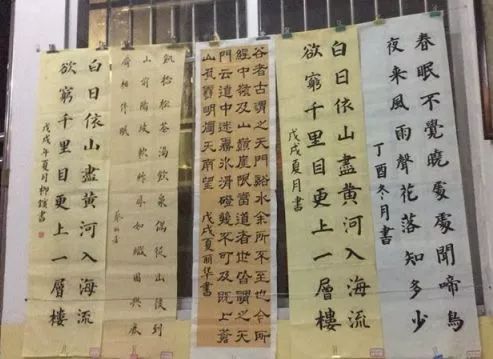 春眠不覺曉處處聞啼鳥
夜来風雨聲花落知多少
丁酉冬月書
白日依山盡黄河入海流
欲窮千里目更上一層樓
戊戌夏月書
谷者古謂之天門谿水余所不至也今所
經中嶺及山巔崖限當道者世皆謂之天
門云道中迷霧冰滑磴幾不可及既上蒼
山負雪明燭天南望 戊戌夏丽华書
飢拾松花渴飲泉偶從山後到
山前陽坡軟草厚如織因與鹿
麛相伴眠
白日依山盡黄河入海流
欲窮千里目更上一層樓
戊戌年夏月柳書